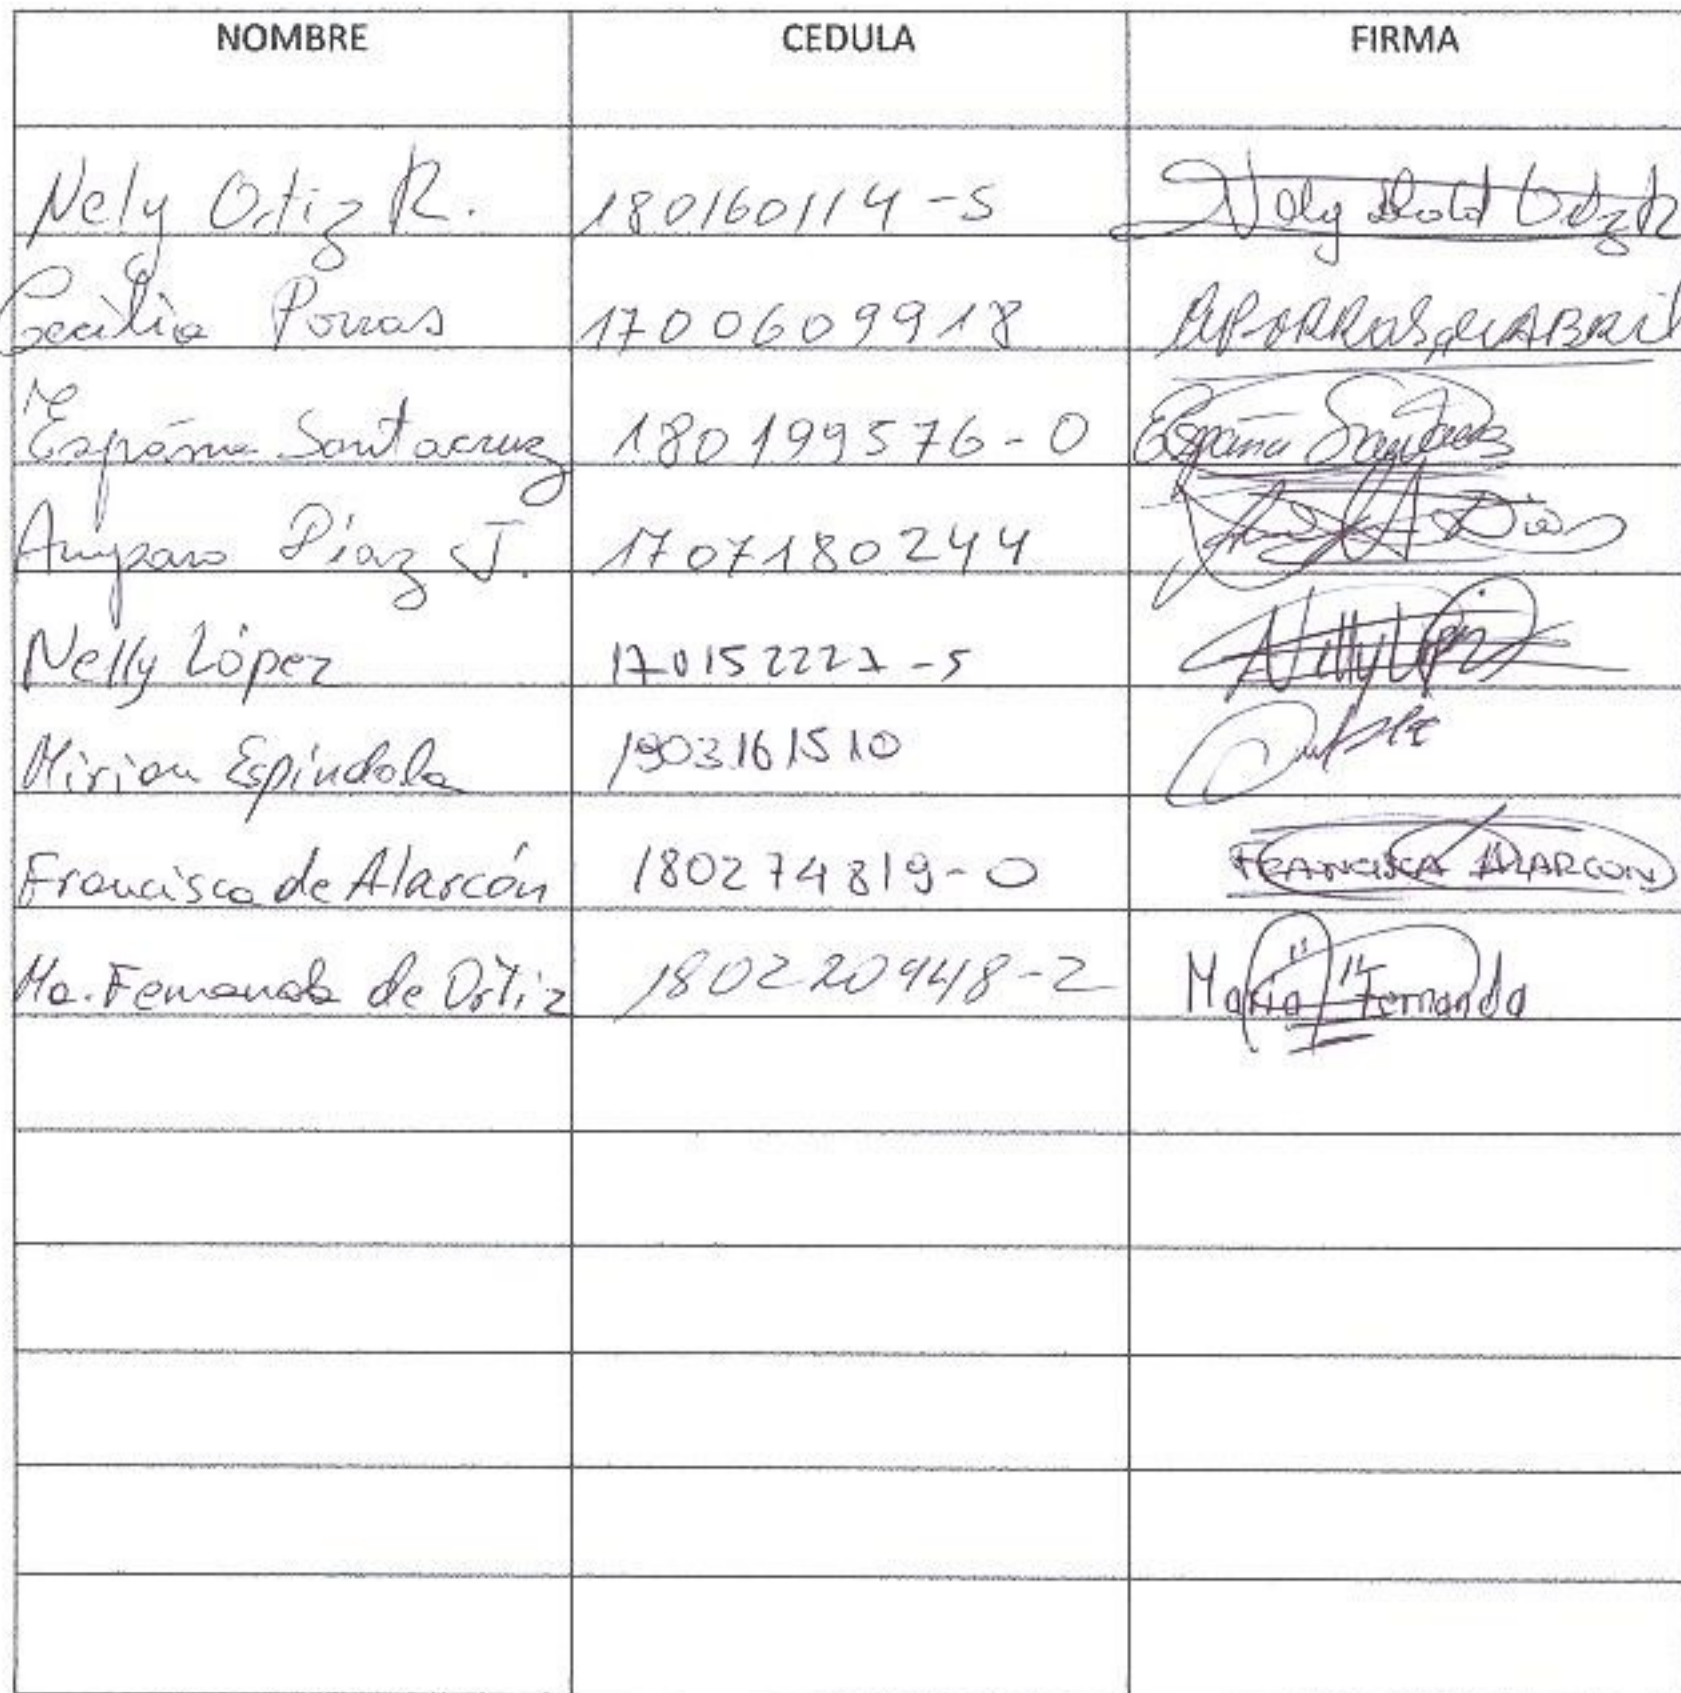 NOMBRE CEDULA FIRMA
Nely Ortiz R. 180160114-5 Nely Ortiz R
Cecilia Porras 1700609918 PORRAS de ABRIL
España Santacruz 180199576-0 España Santacruz
Amparo Díaz J. 1707180244 Díaz
Nelly López 170152227-5 Nelly López
Mirian Espíndola 1803161510
Francisca de Alarcón 180274819-0 FRANCISCA ALARCON
Ma. Fernanda de Ortiz 180220948-2 María Fernanda